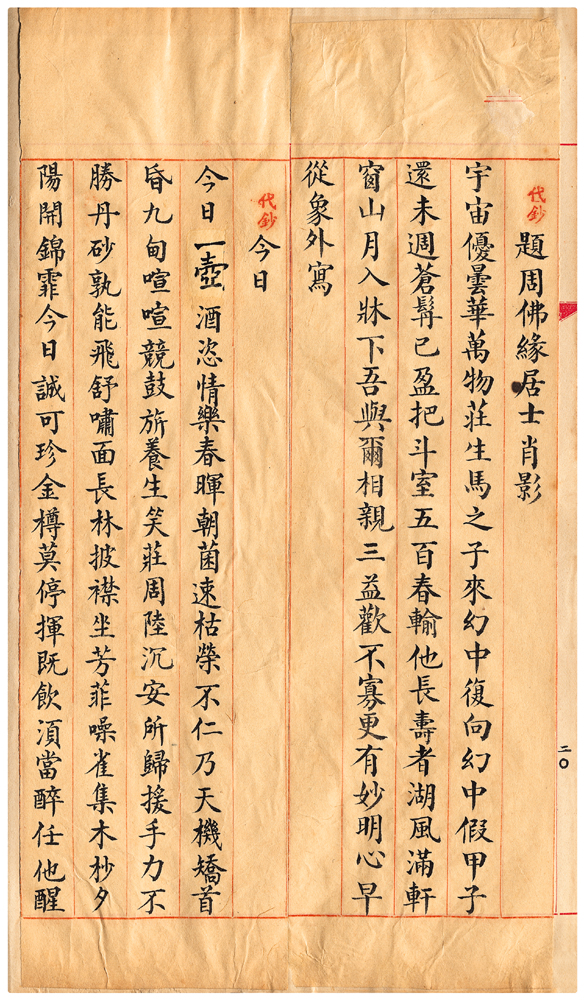 代鈔
題周佛緣居士肖影
宇宙優曇華萬物莊生馬之子來幻中復向幻中假甲子
還未週蒼髯已盈把斗室五百春輸他長壽者湖風滿軒
窗山月入牀下吾與爾相親三益歡不寡更有妙明心早
從象外寫
代鈔
今日
今日一壺酒恣情樂春暉朝菌速枯榮不仁乃天機矯首
昏九甸喧喧競鼓旂養生笑莊周陸沉安所歸援手力不
勝丹砂孰能飛舒嘯面長林披襟坐芳菲噪雀集木杪夕
陽開錦霏今日誠可珍金樽莫停揮既飲須當醉任他醒
二〇